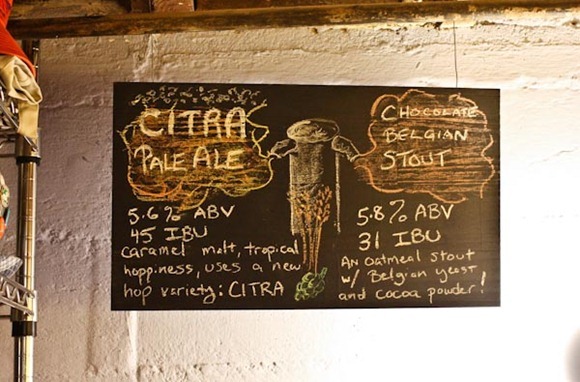 CITRA
PALE ALE
5.6% ABV
45 IBU
Caramel malt, tropical
hoppiness, uses a new
hop variety: CITRA
CHOCOLATE
BELGIAN
STOUT
5.8% ABV
31 IBU
AN oatmeal stout
w/ Belgian yeast
and cocoa powder!